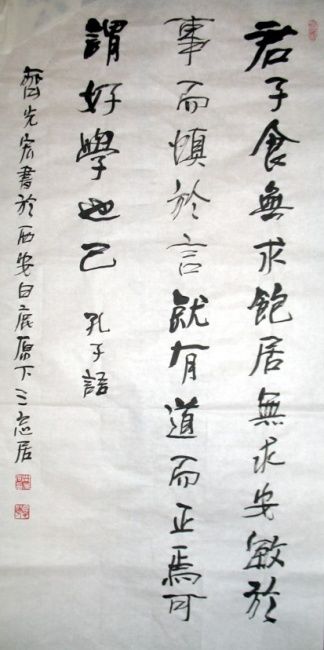 君子食無求飽居無求安敏於
事而慎於言就有道而正焉可
謂好學也己
孔子語
齊光宏書於西安白底原下三忘居